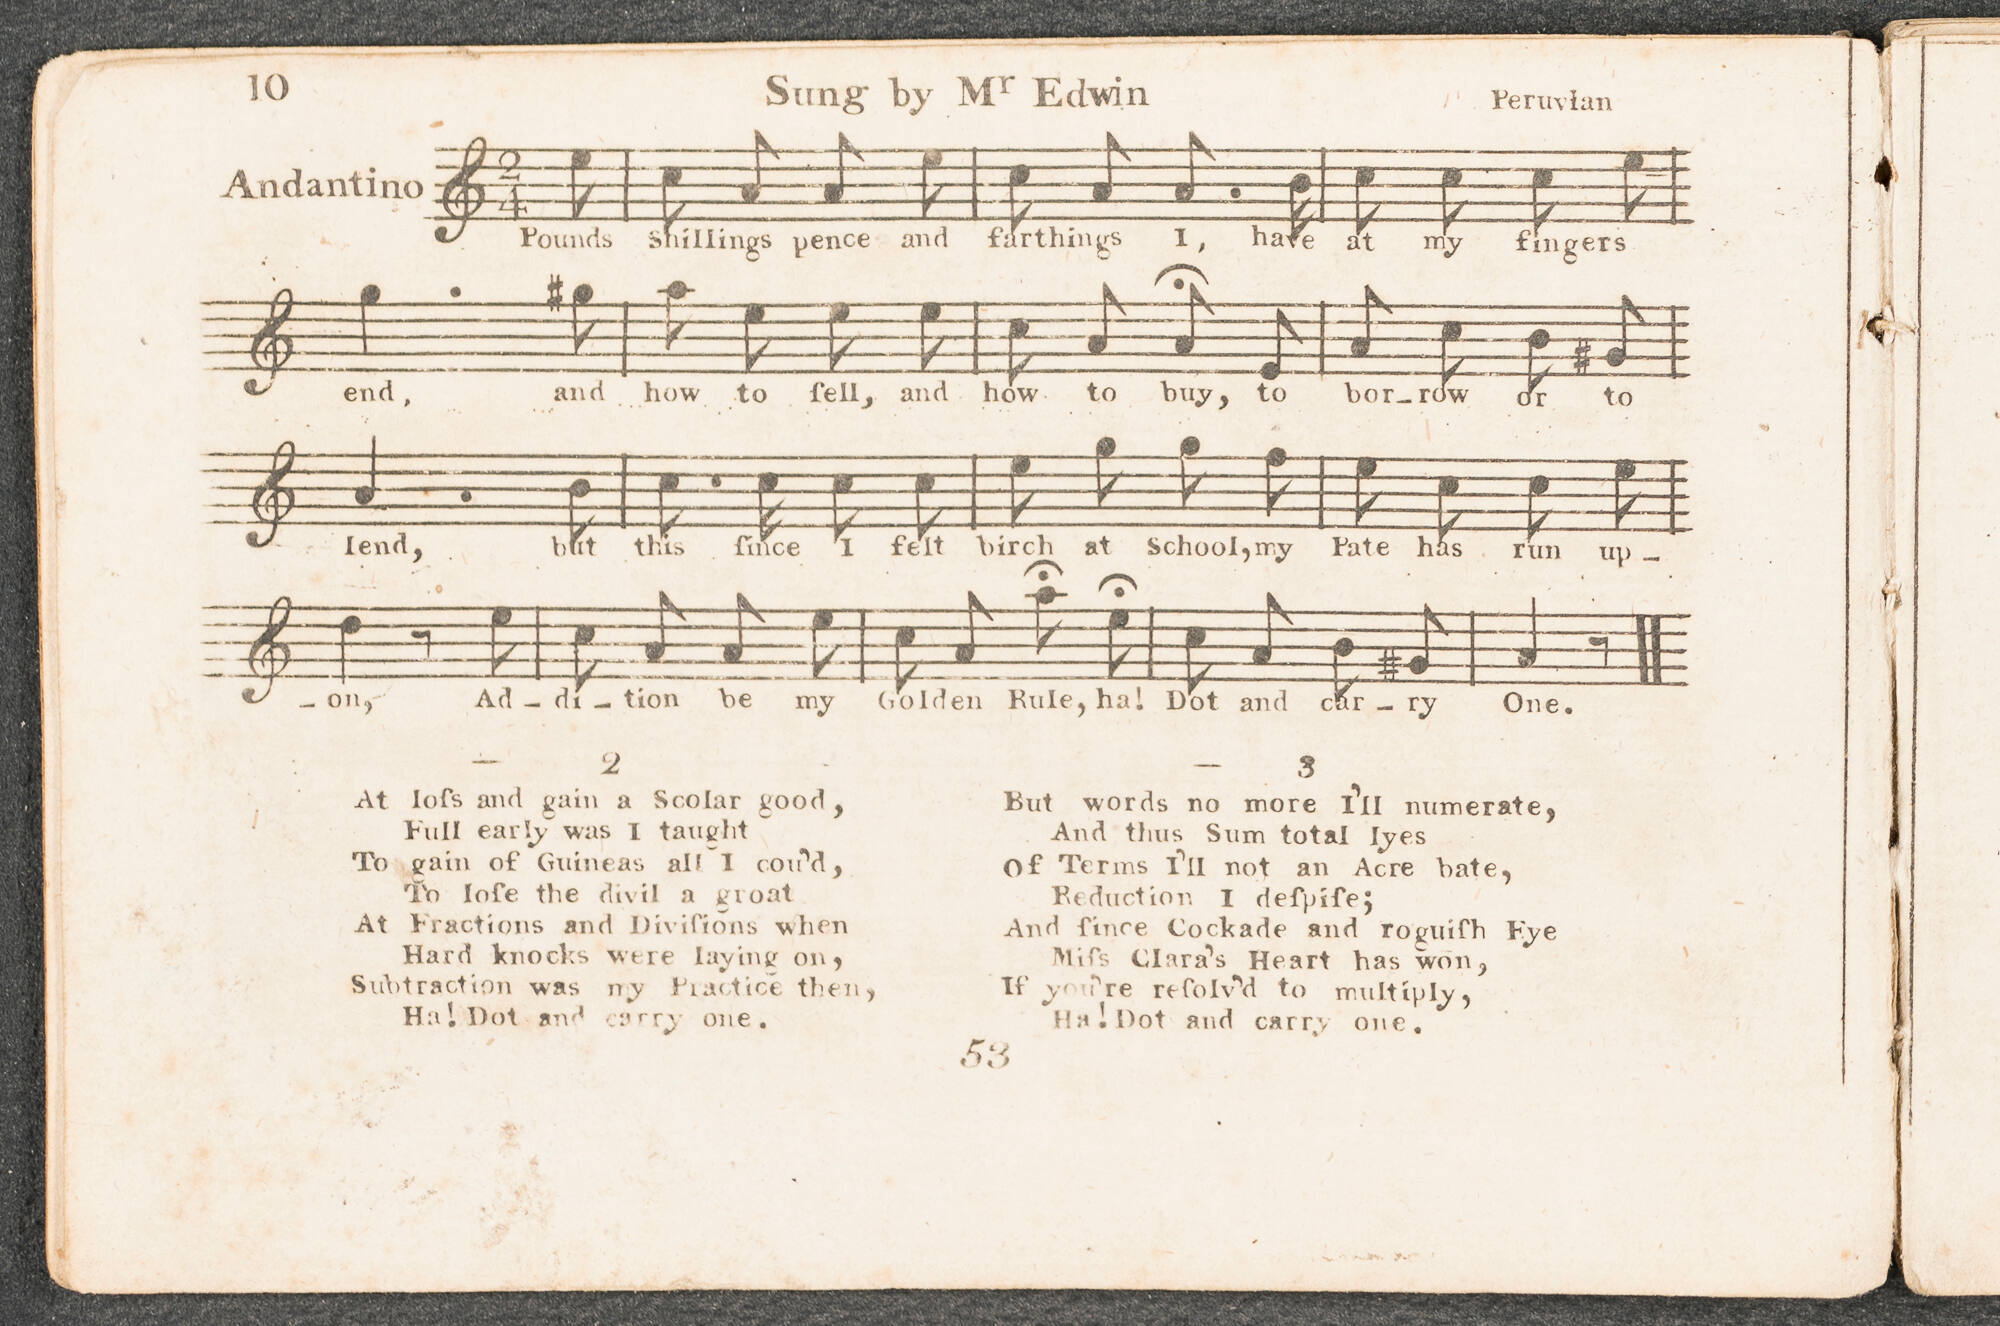 10
Sung by Mr Edwin
Peruvian
Andantino
Pounds shillings pence and farthings I, have at my fingers
end, and how to ſell, and how to buy, to bor-row or to
lend, but this ſince I felt birch at School, my Pate has run up-
-on, Ad-di-tion be my Golden Rule, ha! Dot and car-ry One.
2
At loſs and gain a Scolar good,
Full early was I taught
To gain of Guineas all I cou'd,
To loſe the divil a groat
At Fractions and Diviſions when
Hard knocks were laying on,
Subtraction was my Practice then,
Ha! Dot and carry one.
3
But words no more I'll numerate,
And thus Sum total lyes
Of Terms I'll not an Acre bate,
Reduction I deſpiſe;
And ſince Cockade and roguiſh Eye
Miſs Clara's Heart has won,
If you're reſolv'd to multiply,
Ha! Dot and carry one.
53